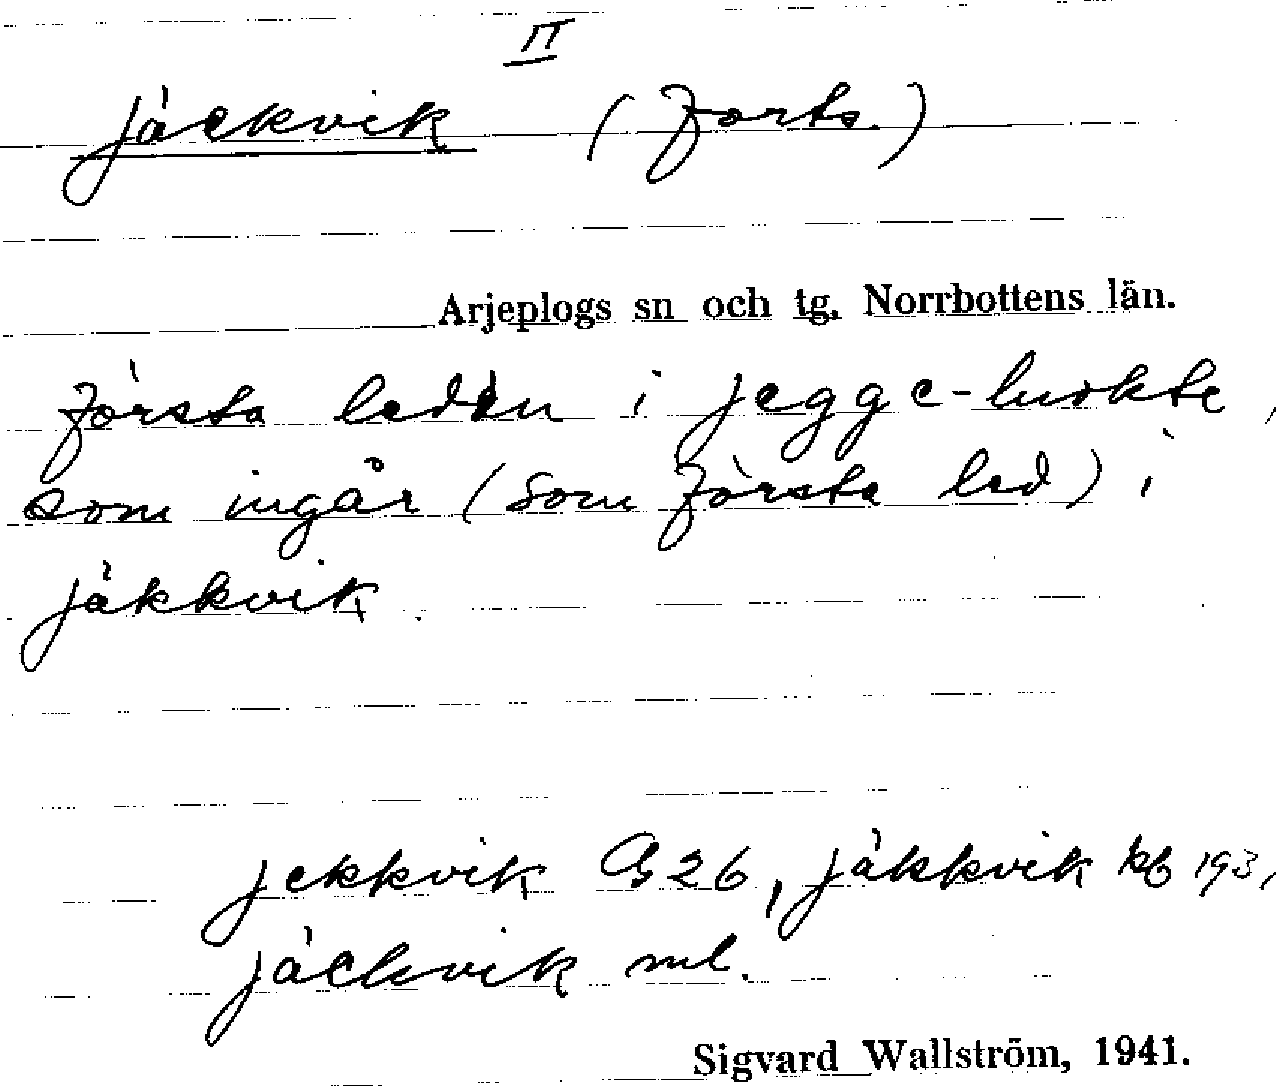 II
jäckvik (Forts)
Arjeplogs sn och tg. Norrbottens län.
första leden i jegge-luokte,
som ingår (som första led) i
jäkkvik.
jekkvik G 26, jäkkvik kb 193,
jäckvik ml.
Sigvard Wallström, 1941.